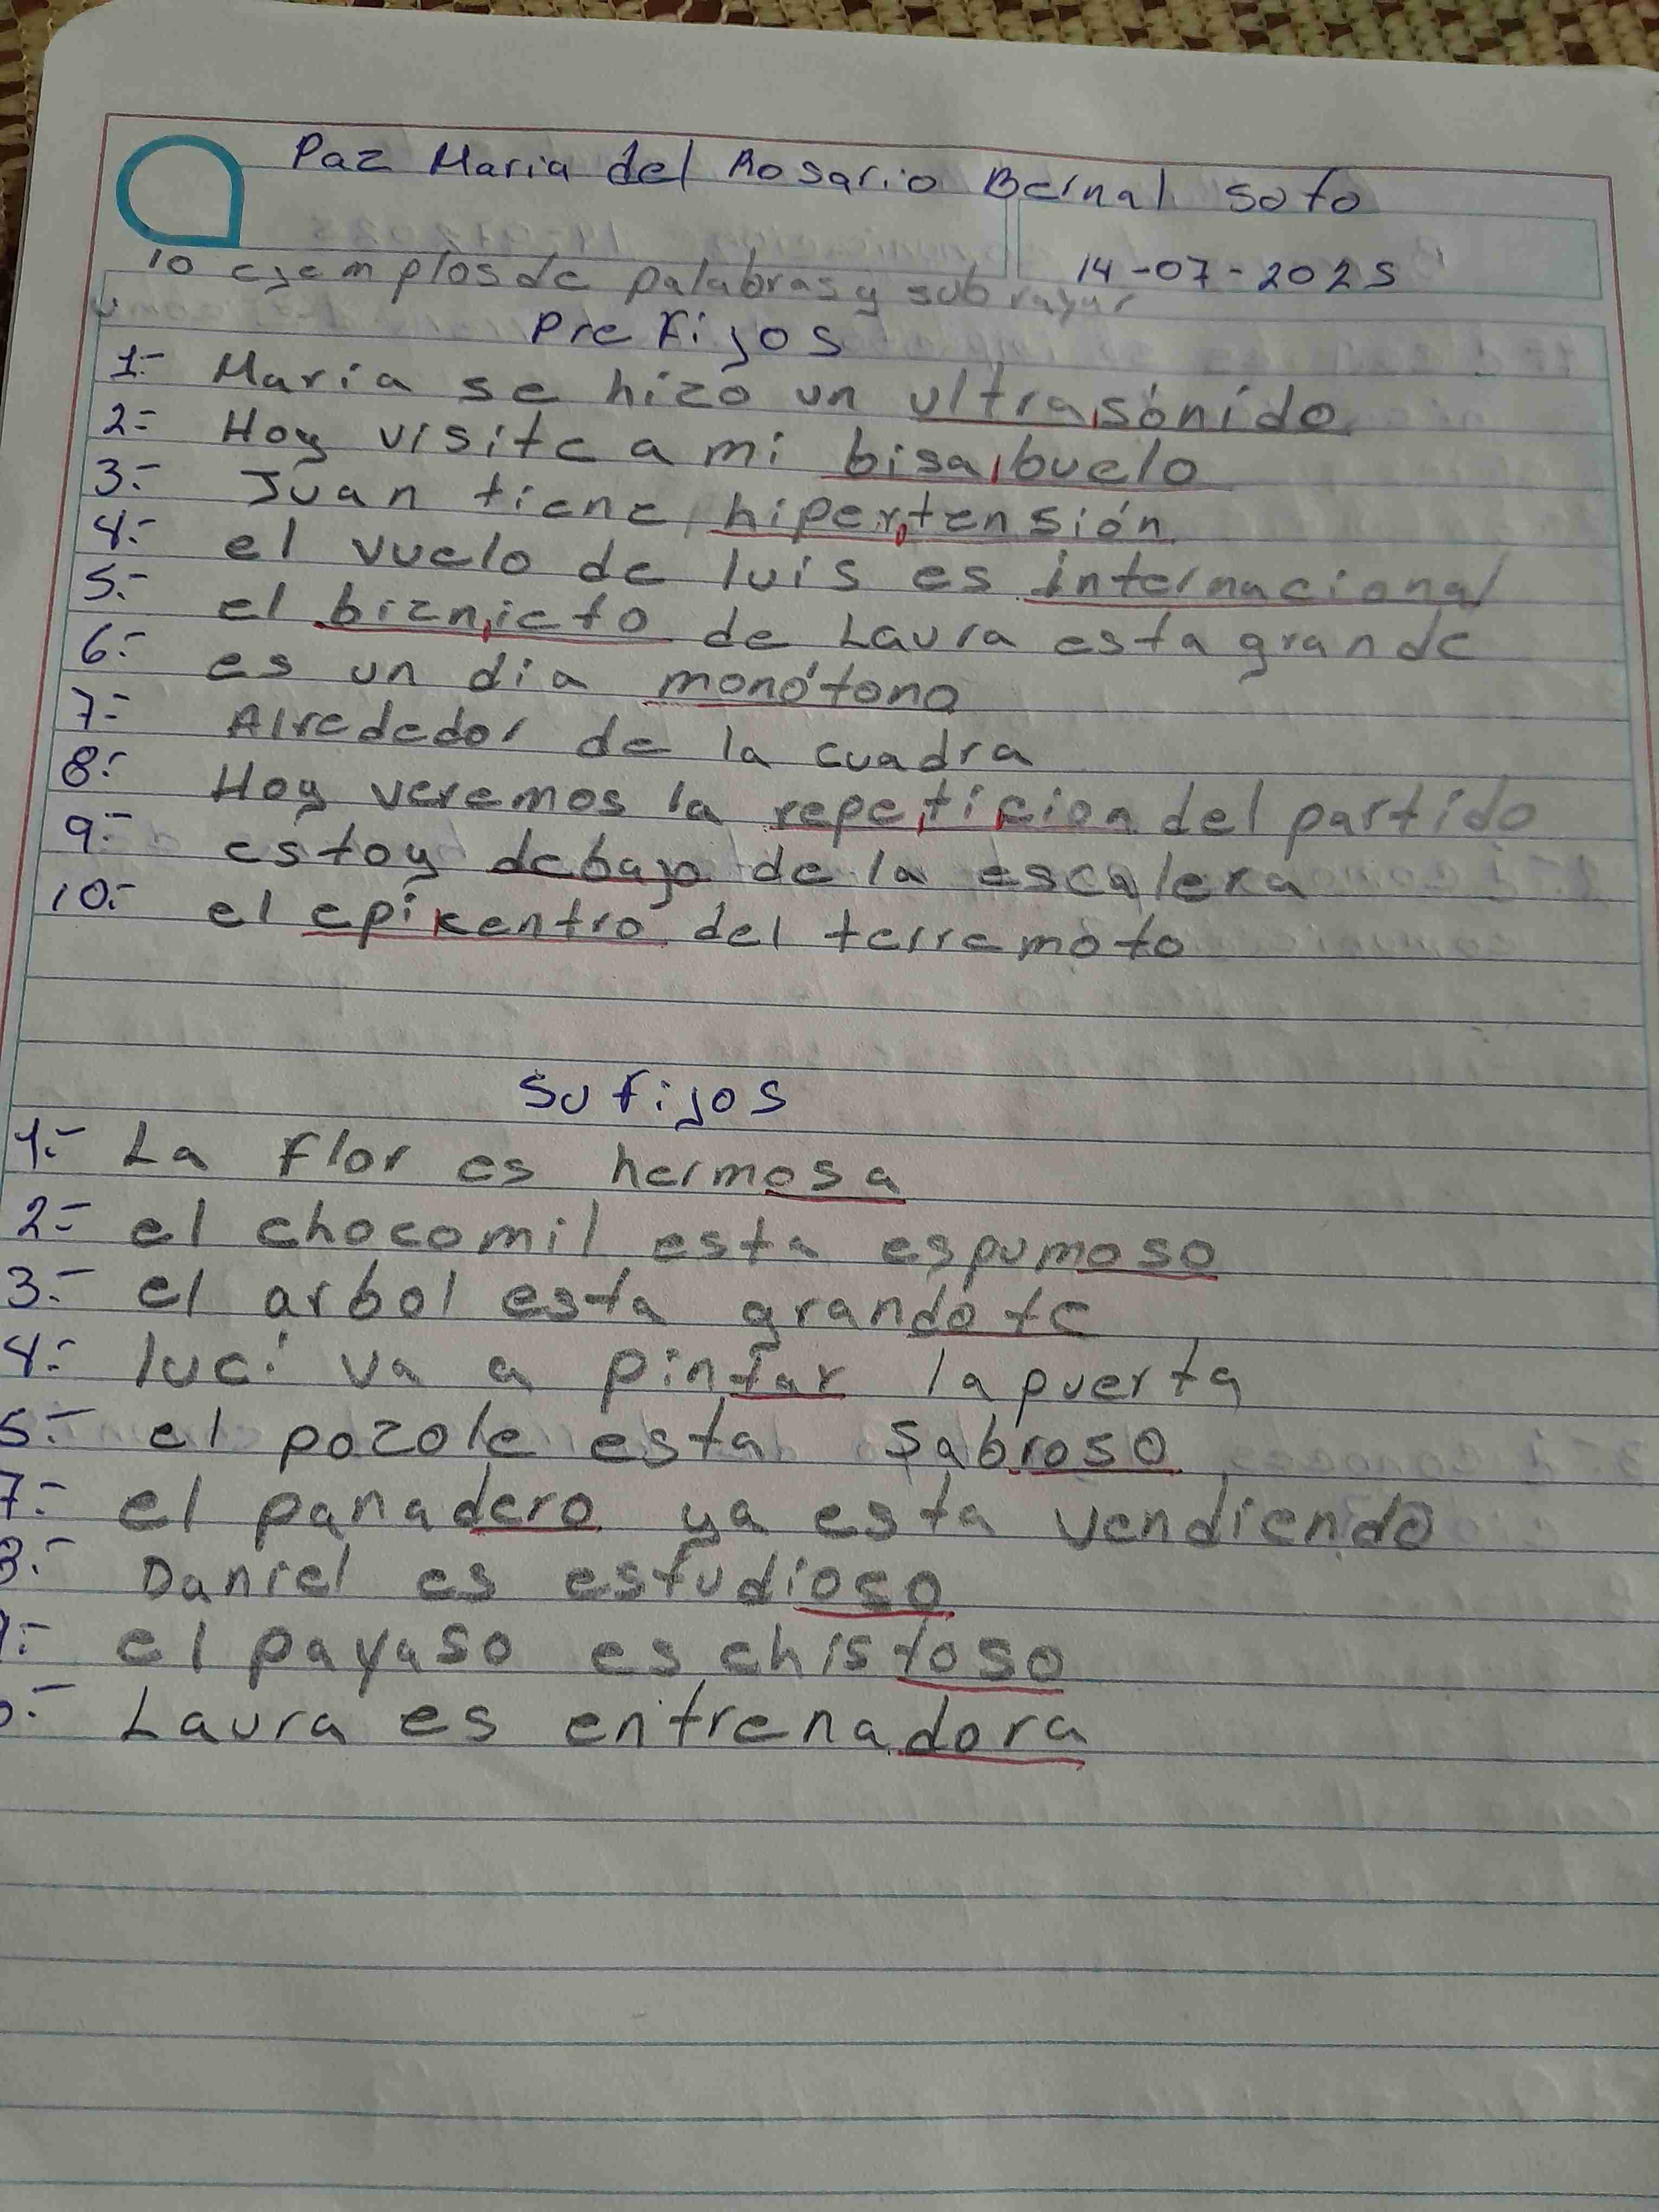 Paz Maria del Rosario Bernal Soto
14-07-2025
10 ejemplos de palabras y subrayar
Prefijos
1.- Maria se hizo un ultrasonido
2.- Hoy visite a mi bisabuelo
3.- Juan tiene hipertensión
4.- el vuelo de luis es internacional
5.- el biznieto de Laura esta grande
6.- es un dia monótono
7.- Alrededor de la cuadra
8.- Hoy veremos la repeticion del partido
9.- estoy debajo de la escalera
10.- el epikentro del terremoto
Sufijos
1.- La flor es hermosa
2.- el chocomil esta espumoso
3.- el arbol esta grandote
4.- luci va a pintar la puerta
5.- el pozole esta sabroso
7.- el panadero ya esta vendiendo
8.- Daniel es estudioso
9.- el payaso es chistoso
0.- Laura es entrenadora